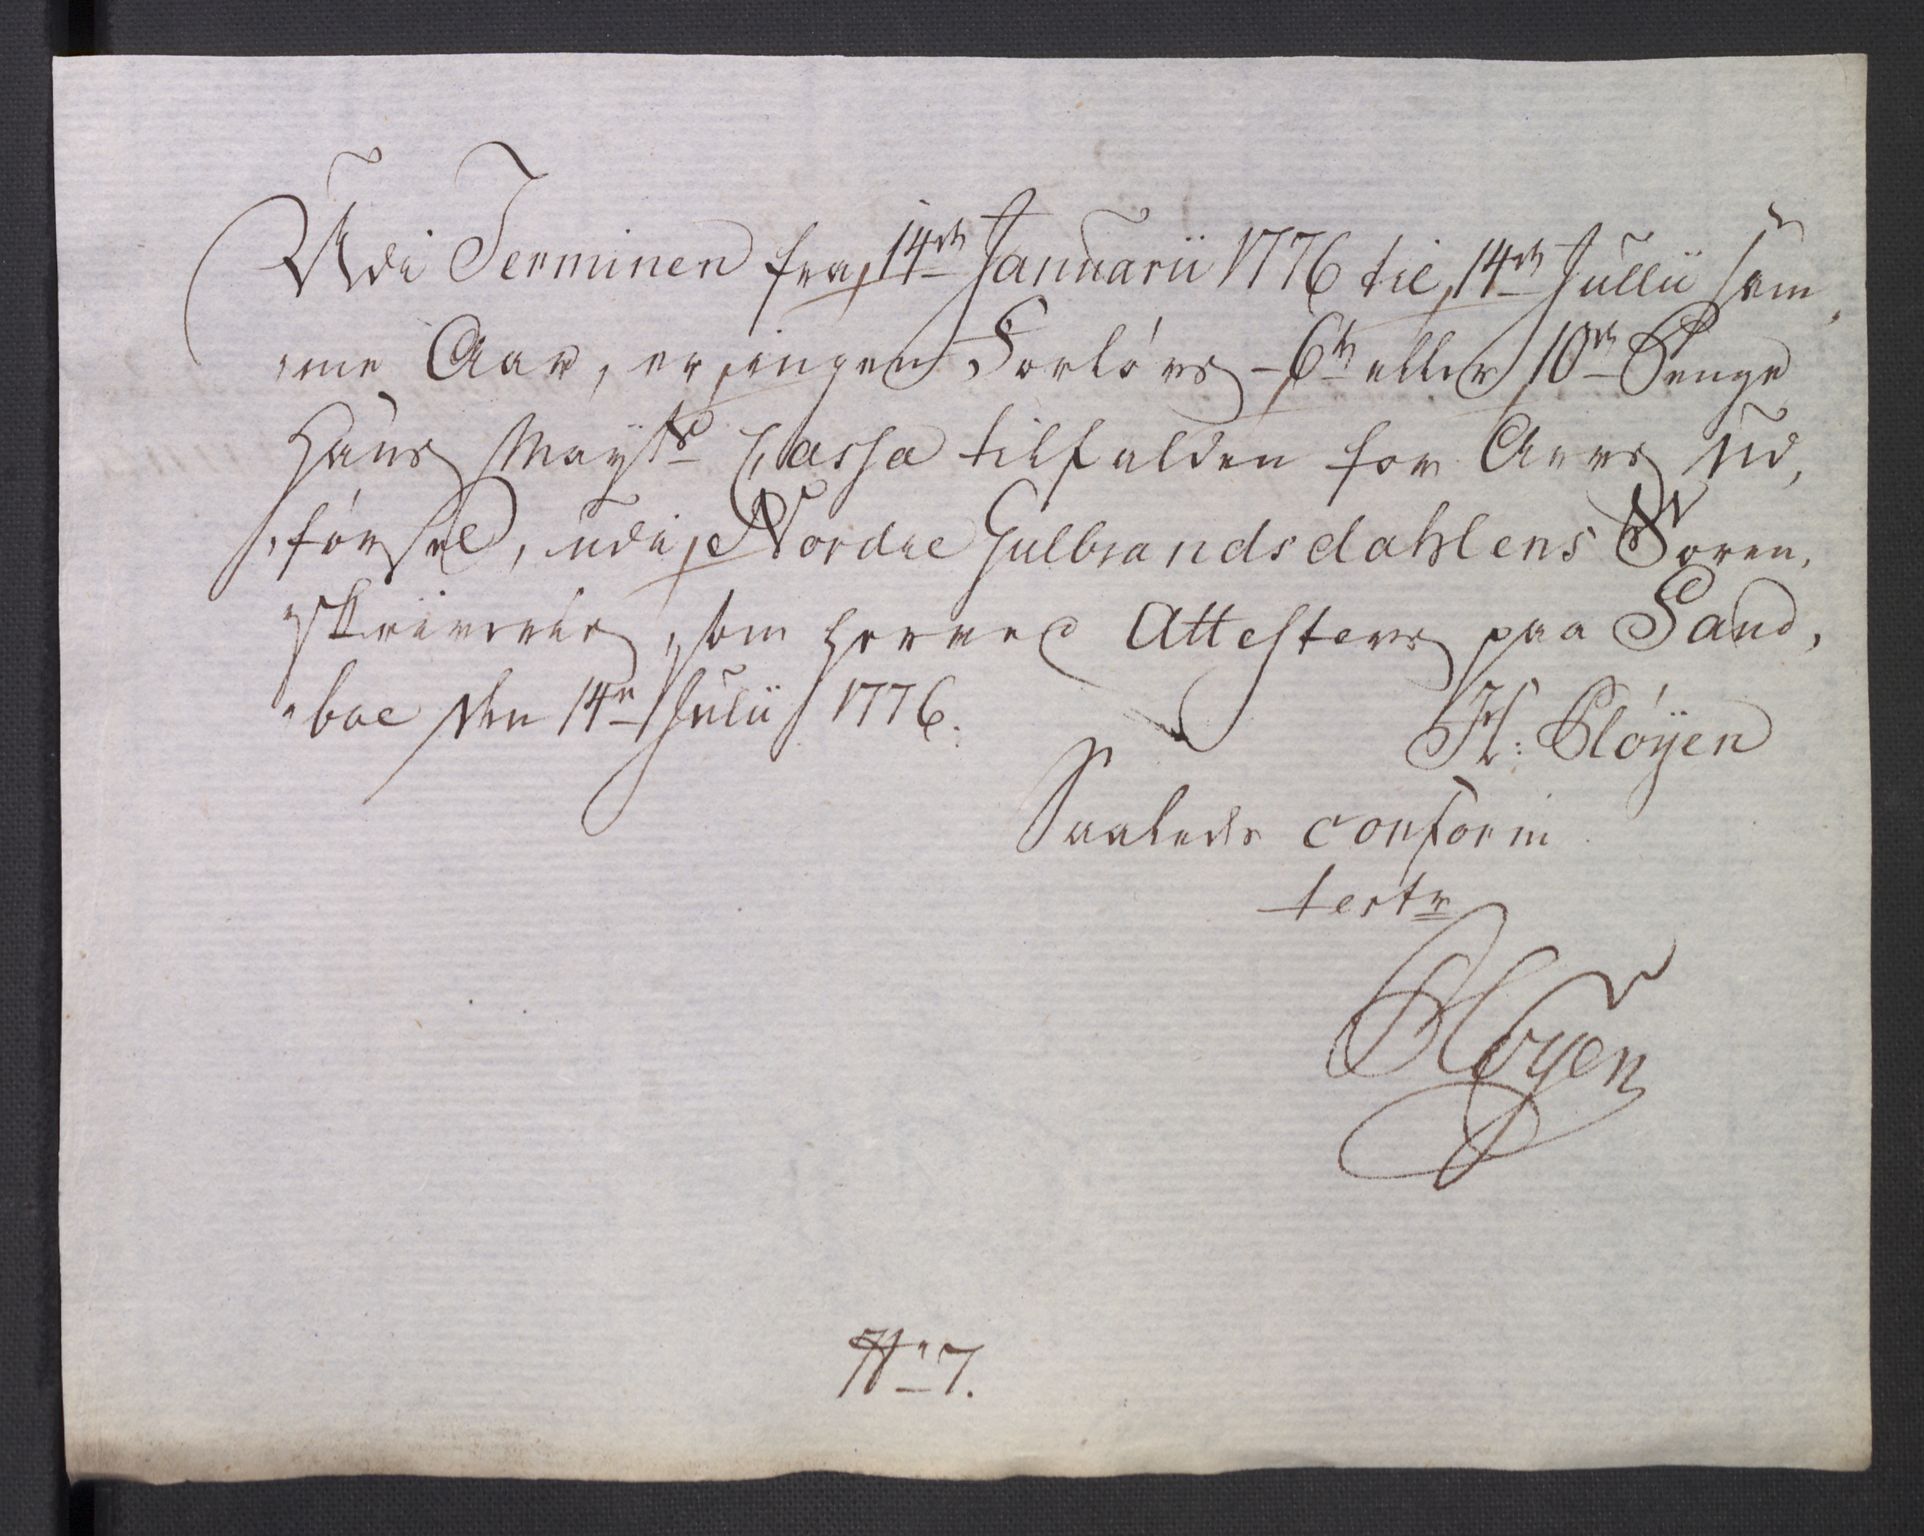 Udi Terminen fra 14de Januarii 1776 til 14de Jullii sam¬
me Aar, er ingen Forlørs 6te eller 10de Penge
Hans Mayts Cassa tilfalden for Arvs Ud,
førsel, udi Nordre Gulbrandsdahlens Soren,
skriverie, som herved Attesteres paa Sand,
boe den 14de Julii 1776.
H: Pløyen
Saaledes conform
tester
Pløyen
No 7.